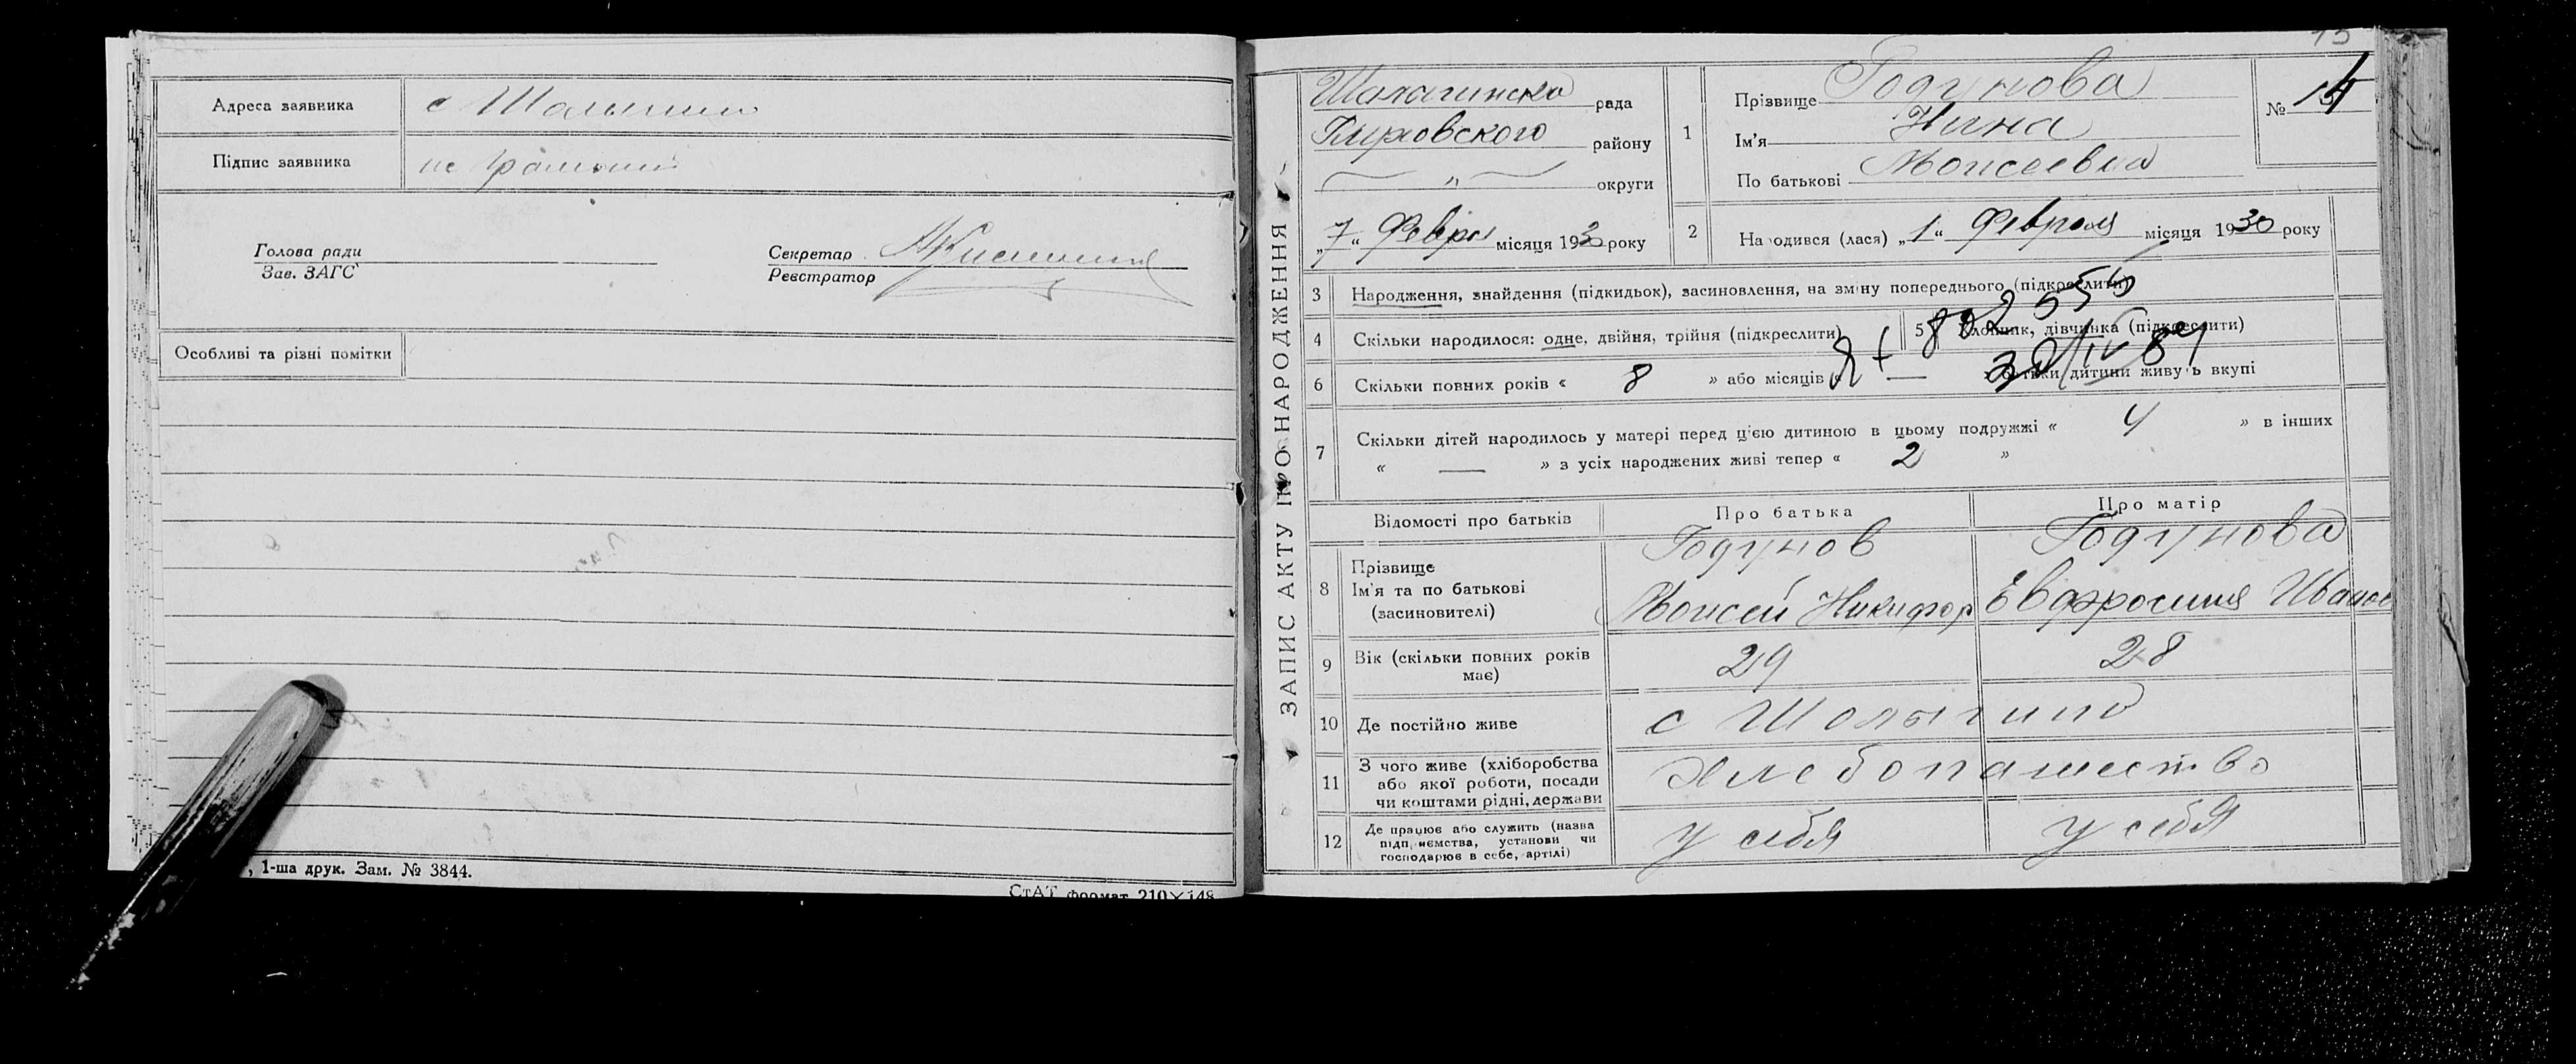 Адреса заявника с Шалыгино
Підпис заявника не грамотн
Голова ради
Зав. ЗАГС
Секретар
Реєстратор
Особливі та різні помітки
, 1-ша друк. Зам. № 3844.
СтАТ формат 210×148
ЗАПИС АКТУ ПРО НАРОДЖЕННЯ
15
Шалагинска рада
Глуховского району
" округи
„7“ Февра місяця 193 0 року
1 Прізвище Годунова
Ім'я Нина
По батькові Моисеевна
№ 14
2 Народився (лася) „1“ Февраля місяця 1930 року
3 Народження, знайдення (підкидьок), засиновлення, на зміну попереднього (підкреслити)
4 Скільки народилося: одне, двійня, трійня (підкреслити)
5 Хлопчик, дівчинка (підкреслити)
6 Скільки повних років « 8 » або місяців « — » батьки дитини живуть вкупі
30/IV 84
7 Скільки дітей народилось у матері перед цією дитиною в цьому подружжі « 4 » в інших
« — » з усіх народжених живі тепер « 2 »
Відомості про батьків Про батька Про матір
8 Прізвище
Ім'я та по батькові
(засиновителі)
Годунов
Моисей Никифор
Годунова
Евфросиния Иванов
9 Вік (скільки повних років
має)
29 28
10 Де постійно живе с Шалыгино
11 З чого живе (хліборобства
або якої роботи, посади
чи коштами рідні, держави
Хлебопашество
12 Де працює або служить (назва
підприємства, установи чи
господарює в себе, артілі)
у себя у себя